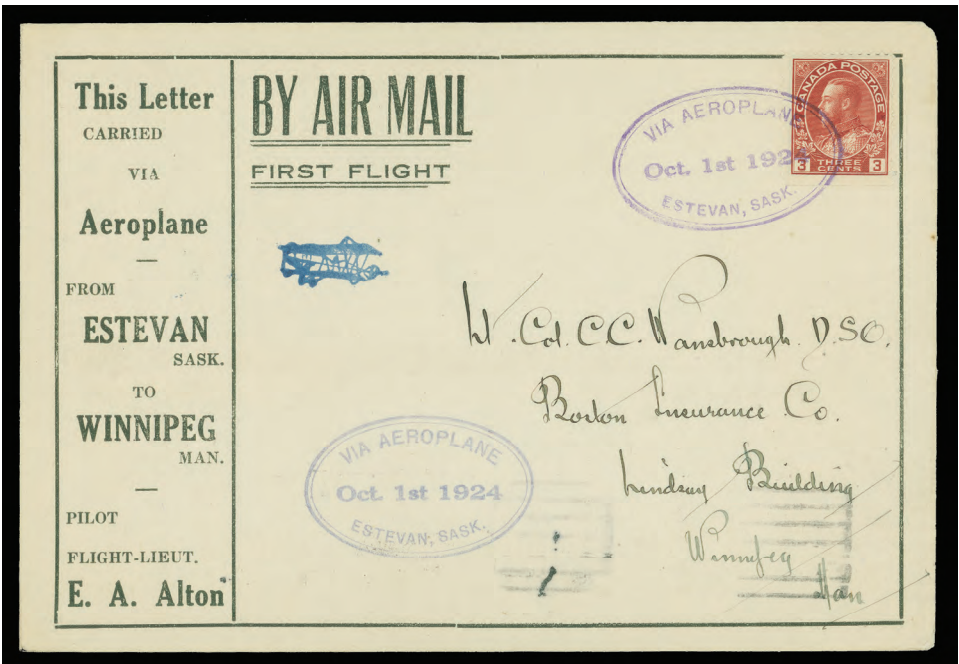 This Letter
CARRIED
VIA
Aeroplane
—
FROM
ESTEVAN
SASK.
TO
WINNIPEG
MAN.
—
PILOT
FLIGHT-LIEUT.
E. A. Alton
BY AIR MAIL
FIRST FLIGHT
VIA AEROPLANE
Oct. 1st 1924
ESTEVAN, SASK.
CANADA POSTAGE
3 THREE CENTS 3
Lt. Col. C. C. Wansbrough. D.S.O.
Boston Insurance Co.
Lindsay Building
Winnipeg
Man
VIA AEROPLANE
Oct. 1st 1924
ESTEVAN, SASK.